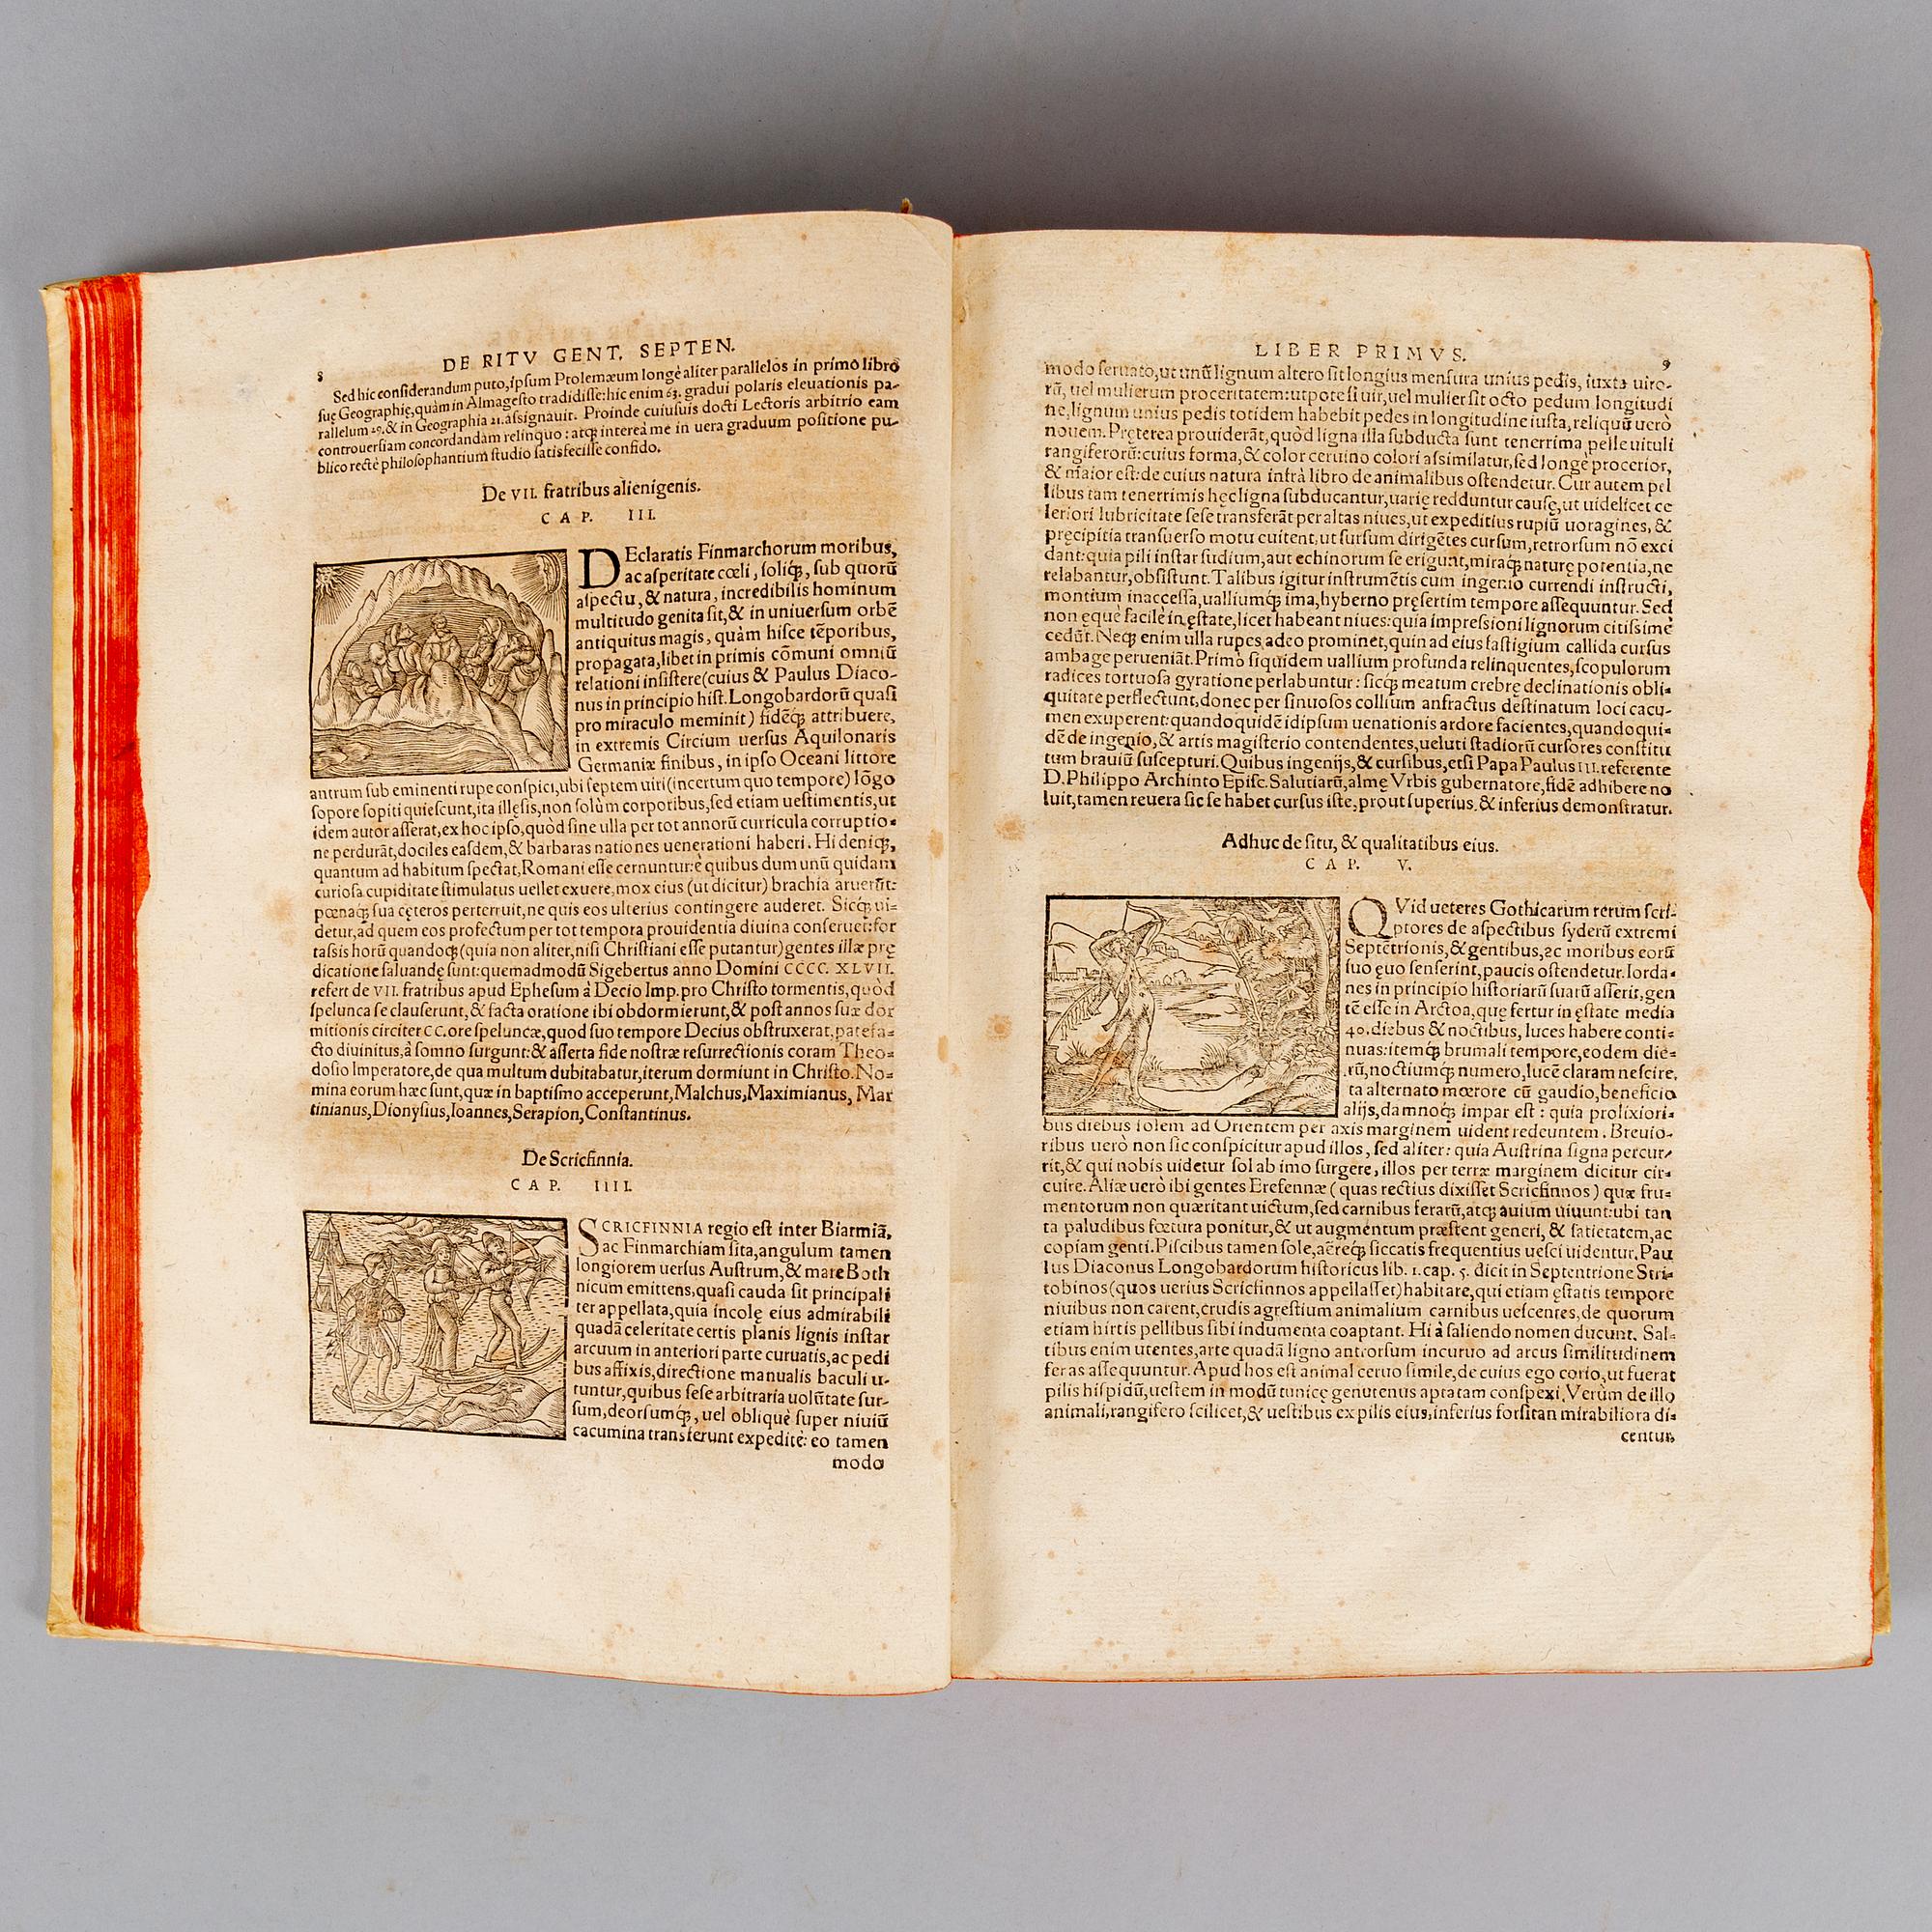 8 DE RITV GENT. SEPTEN.
Sed hic considerandum puto, ipsum Ptolemæum longè aliter parallelos in primo libro
suę Geographię, quàm in Almagesto tradidisse: hic enim 63. gradui polaris eleuationis pa-
rallelum 29. & in Geographia 21. assignauit. Proinde cuiusuis docti Lectoris arbitrio eam
controuersiam concordandam relinquo: atq; interea me in uera graduum positione pu-
blico rectè philosophantium studio satisfecisse confido.
De VII. fratribus alienigenis.
CAP. III.
DEclaratis Finmarchorum moribus,
ac asperitate cœli, soliq;, sub quorū
aspectu, & natura, incredibilis hominum
multitudo genita sit, & in uniuersum orbē
antiquitus magis, quàm hisce tēporibus,
propagata, libet in primis cōmuni omniū
relationi insistere (cuius & Paulus Diaco-
nus in principio hist. Longobardorū quasi
pro miraculo meminit) fidēq; attribuere,
in extremis Circium uersus Aquilonaris
Germaniæ finibus, in ipso Oceani littore
antrum sub eminenti rupe conspici, ubi septem uiri (incertum quo tempore) lōgo
sopore sopiti quiescunt, ita illęsis, non solùm corporibus, sed etiam uestimentis, ut
idem autor asserat, ex hoc ipso, quòd sine ulla per tot annorū curricula corruptio-
ne perdurāt, dociles easdem, & barbaras nationes uenerationi haberi. Hi deniq;,
quantum ad habitum spectat, Romani esse cernuntur: è quibus dum unū quidam
curiosa cupiditate stimulatus uellet exuere, mox eius (ut dicitur) brachia aruerūt:
pœnaq; sua cęteros perterruit, ne quis eos ulterius contingere auderet. Sicq; ui-
detur, ad quem eos profectum per tot tempora prouidentia diuina conseruet: for
tassis horū quandoq; (quia non aliter, nisi Christiani esse putantur) gentes illæ prę
dicatione saluandę sunt: quemadmodū Sigebertus anno Domini CCCC. XLVII.
refert de VII. fratribus apud Ephesum à Decio Imp. pro Christo tormentis, quòd
spelunca se clauserunt, & facta oratione ibi obdormierunt, & post annos suæ dor
mitionis circiter CC. ore speluncæ, quod suo tempore Decius obstruxerat, patefa-
cto diuinitus, à somno surgunt: & asserta fide nostræ resurrectionis coram Theo-
dosio Imperatore, de qua multum dubitabatur, iterum dormiunt in Christo. No-
mina eorum hæc sunt, quæ in baptismo acceperunt, Malchus, Maximianus, Mar
tinianus, Dionysius, Ioannes, Serapion, Constantinus.
De Scricfinnia.
CAP. IIII.
SCRICFINNIA regio est inter Biarmiā,
ac Finmarchiam sita, angulum tamen
longiorem uersus Austrum, & mare Both
nicum emittens, quasi cauda sit principali
ter appellata, quia incolę eius admirabili
quadā celeritate certis planis lignis instar
arcuum in anteriori parte curuatis, ac pedi
bus affixis, directione manualis baculi u-
tuntur, quibus sese arbitraria uolūtate sur-
sum, deorsumq;, uel obliquè super niuiū
cacumina transferunt expeditè: eo tamen
modo
LIBER PRIMVS. 9
modo seruato, ut unū lignum altero sit longius mensura unius pedis, iuxta uiro-
rū, uel mulierum proceritatem: utpote si uir, uel mulier sit octo pedum longitudi
ne, lignum unius pedis totidem habebit pedes in longitudine iusta, reliquū uerò
nouem. Pręterea prouiderāt, quòd ligna illa subducta sunt tenerrima pelle uituli
rangiferorū: cuius forma, & color ceruino colori assimilatur, sed longè procerior,
& maior est: de cuius natura infrà libro de animalibus ostendetur. Cur autem pel
libus tam tenerrimis hęc ligna subducantur, uarię redduntur causę, ut uidelicet ce
leriori lubricitate sese transferāt per altas niues, ut expeditius rupiū uoragines, &
pręcipitia transuerso motu euitent, ut sursum dirigētes cursum, retrorsum nō exci
dant: quia pili instar sudium, aut echinorum se erigunt, miraq; naturę potentia, ne
relabantur, obsistunt. Talibus igitur instrumētis cum ingenio currendi instructi,
montium inaccessa, ualliumq; ima, hyberno pręsertim tempore assequuntur. Sed
non ęquè facilè in ęstate, licet habeant niues: quia impressioni lignorum citissimè
cedūt. Neq; enim ulla rupes adeo prominet, quin ad eius fastigium callida cursus
ambage perueniāt. Primò siquidem uallium profunda relinquentes, scopulorum
radices tortuosa gyratione perlabuntur: sicq; meatum crebrę declinationis obli-
quitate perflectunt, donec per sinuosos collium anfractus destinatum loci cacu-
men exuperent: quandoquidē idipsum uenationis ardore facientes, quandoqui-
dē de ingenio, & artis magisterio contendentes, ueluti stadiorū cursores constitu
tum brauiū suscepturi. Quibus ingenijs, & cursibus, etsi Papa Paulus III. referente
D. Philippo Archinto Episc. Salutiarū, almę Vrbis gubernatore, fidē adhibere no
luit, tamen reuera sic se habet cursus iste, prout superius, & inferius demonstratur.
Adhuc de situ, & qualitatibus eius.
CAP. V.
QVid ueteres Gothicarum rerum scri-
ptores de aspectibus syderū extremi
Septētrionis, & gentibus, ac moribus eorū
suo ęuo senserint, paucis ostendetur. Iorda-
nes in principio historiarū suarū asserit, gen
tē esse in Arctoa, quę fertur in ęstate media
40. diebus & noctibus, luces habere conti-
nuas: itemq; brumali tempore, eodem die-
rū, noctiumq; numero, lucē claram nescire,
ta alternato mœrore cū gaudio, beneficio
alijs, damnoq; impar est: quia prolixiori-
bus diebus solem ad Orientem per axis marginem uident redeuntem. Breuio-
ribus uerò non sic conspicitur apud illos, sed aliter: quia Austrina signa percur-
rit, & qui nobis uidetur sol ab imo surgere, illos per terræ marginem dicitur cir-
cuire. Aliæ uerò ibi gentes Erefennæ (quas rectius dixisset Scricfinnos) quæ fru-
mentorum non quæritant uictum, sed carnibus ferarū, atq; auium uiuunt: ubi tan
ta paludibus fœtura ponitur, & ut augmentum præstent generi, & satietatem, ac
copiam genti. Piscibus tamen sole, aëreq; siccatis frequentius uesci uidentur. Pau
lus Diaconus Longobardorum historicus lib. 1. cap. 5. dicit in Septentrione Stri-
tobinos (quos uerius Scricfinnos appellasset) habitare, qui etiam ęstatis tempore
niuibus non carent, crudis agrestium animalium carnibus uescentes, de quorum
etiam hirtis pellibus sibi indumenta coaptant. Hi à saliendo nomen ducunt. Sal-
tibus enim utentes, arte quadā ligno antrorsum incuruo ad arcus similitudinem
feras assequuntur. Apud hos est animal ceruo simile, de cuius ego corio, ut fuerat
pilis hispidū, uestem in modū tunicę genutenus aptatam conspexi. Verùm de illo
animali, rangifero scilicet, & uestibus ex pilis eius, inferius forsitan mirabiliora di-
centur,